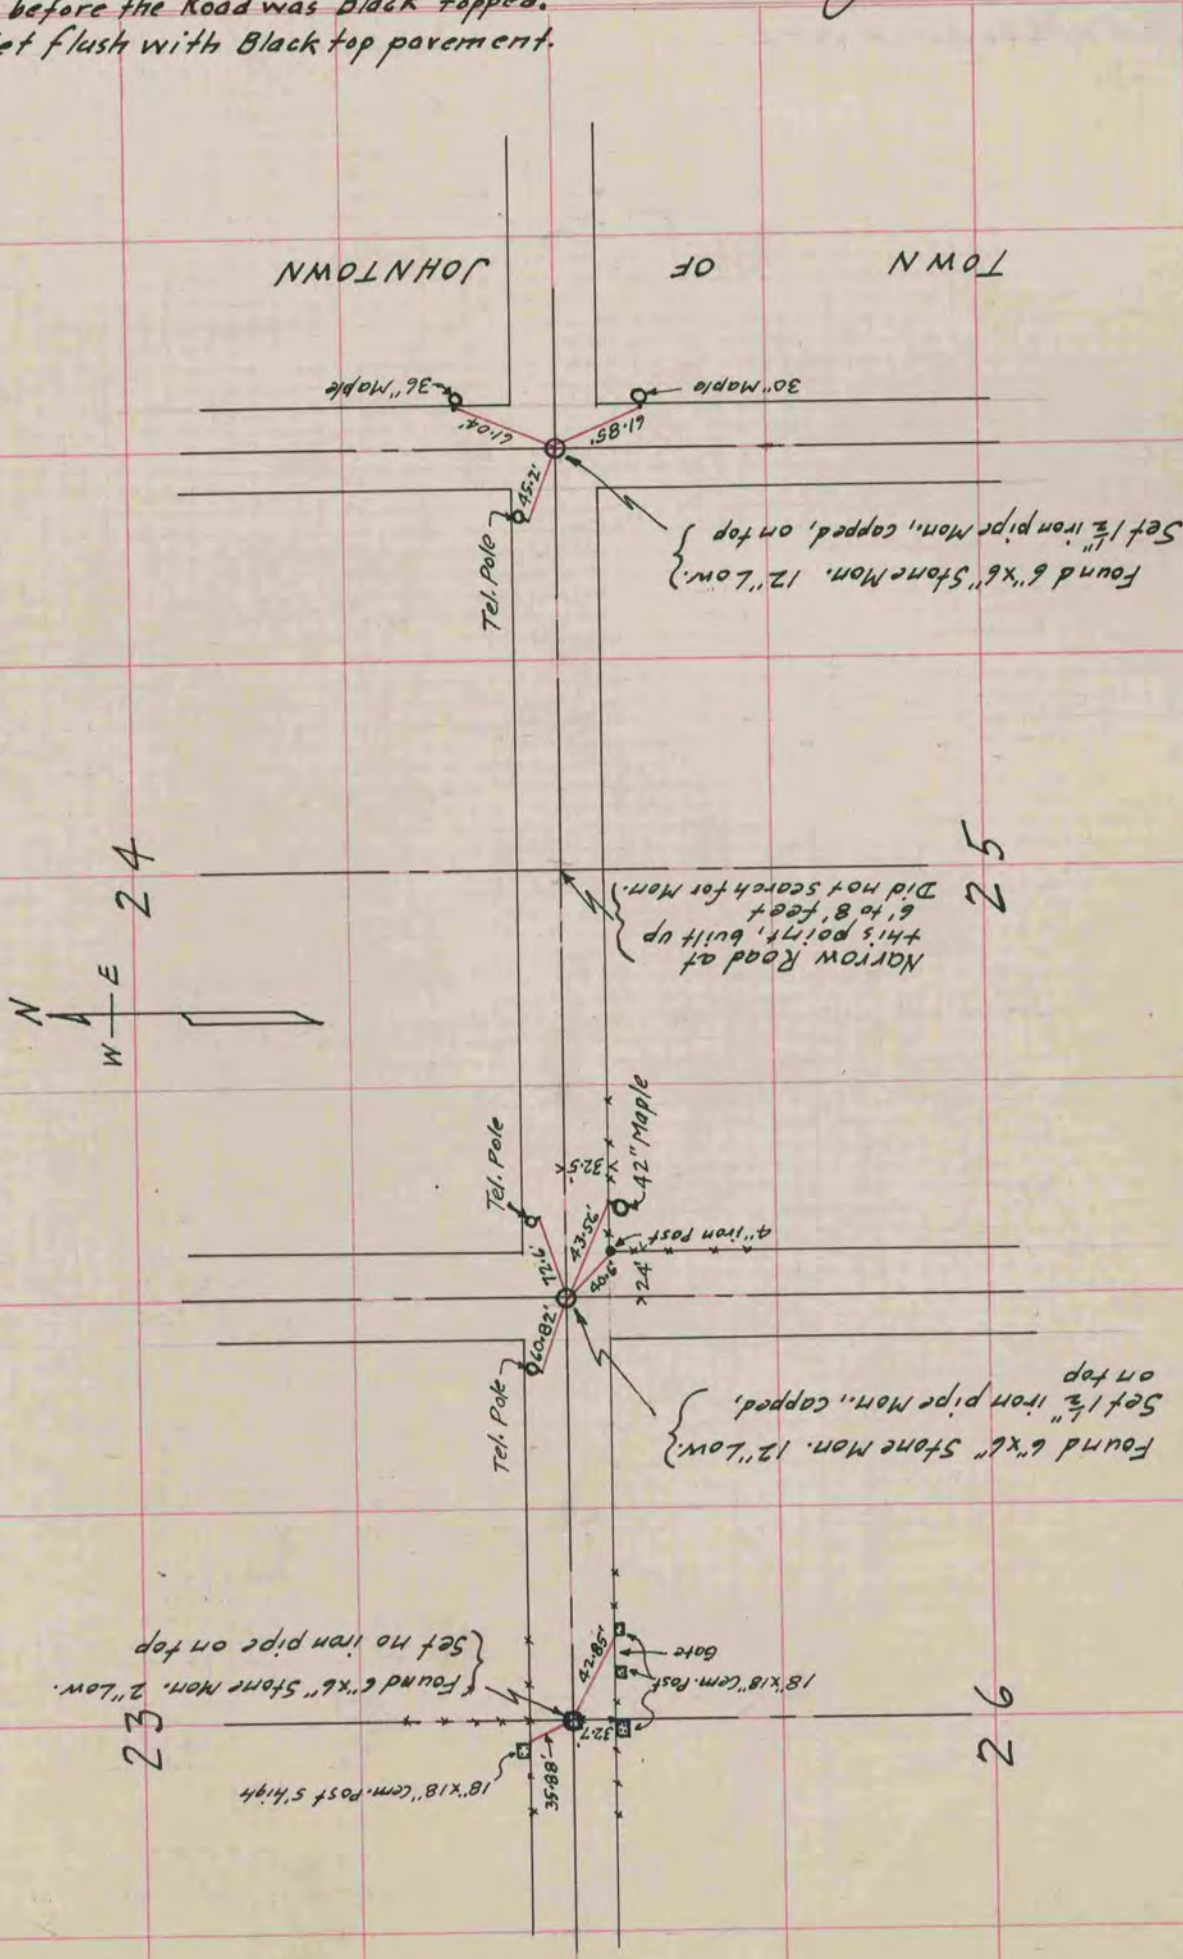 before the Road was Black topped.
et flush with Black top pavement.
TOWN OF JOHNTOWN
36" Maple
30" Maple
61.04'
61.85'
45.2'
Tel. Pole
Found 6"x6" Stone Mon. 12" Low.
Set 1½" iron pipe Mon., capped, on top
24
25
N
W E
Narrow Road at
this point, built up
6' to 8' feet
Did not search for Mon.
Tel. Pole
42" Maple
32.5'
43.56'
72.6'
4" iron Post
40.6'
24'
60.82'
Tel. Pole
Found 6"x6" Stone Mon. 12" Low.
Set 1½" iron pipe Mon., capped,
on top
Found 6"x6" Stone Mon. 2" Low.
Set no iron pipe on top
42.85'
Gate
18"x18" Cem. Post
32.7'
35.88'
18"x18" Cem. Post 5' high
23
26